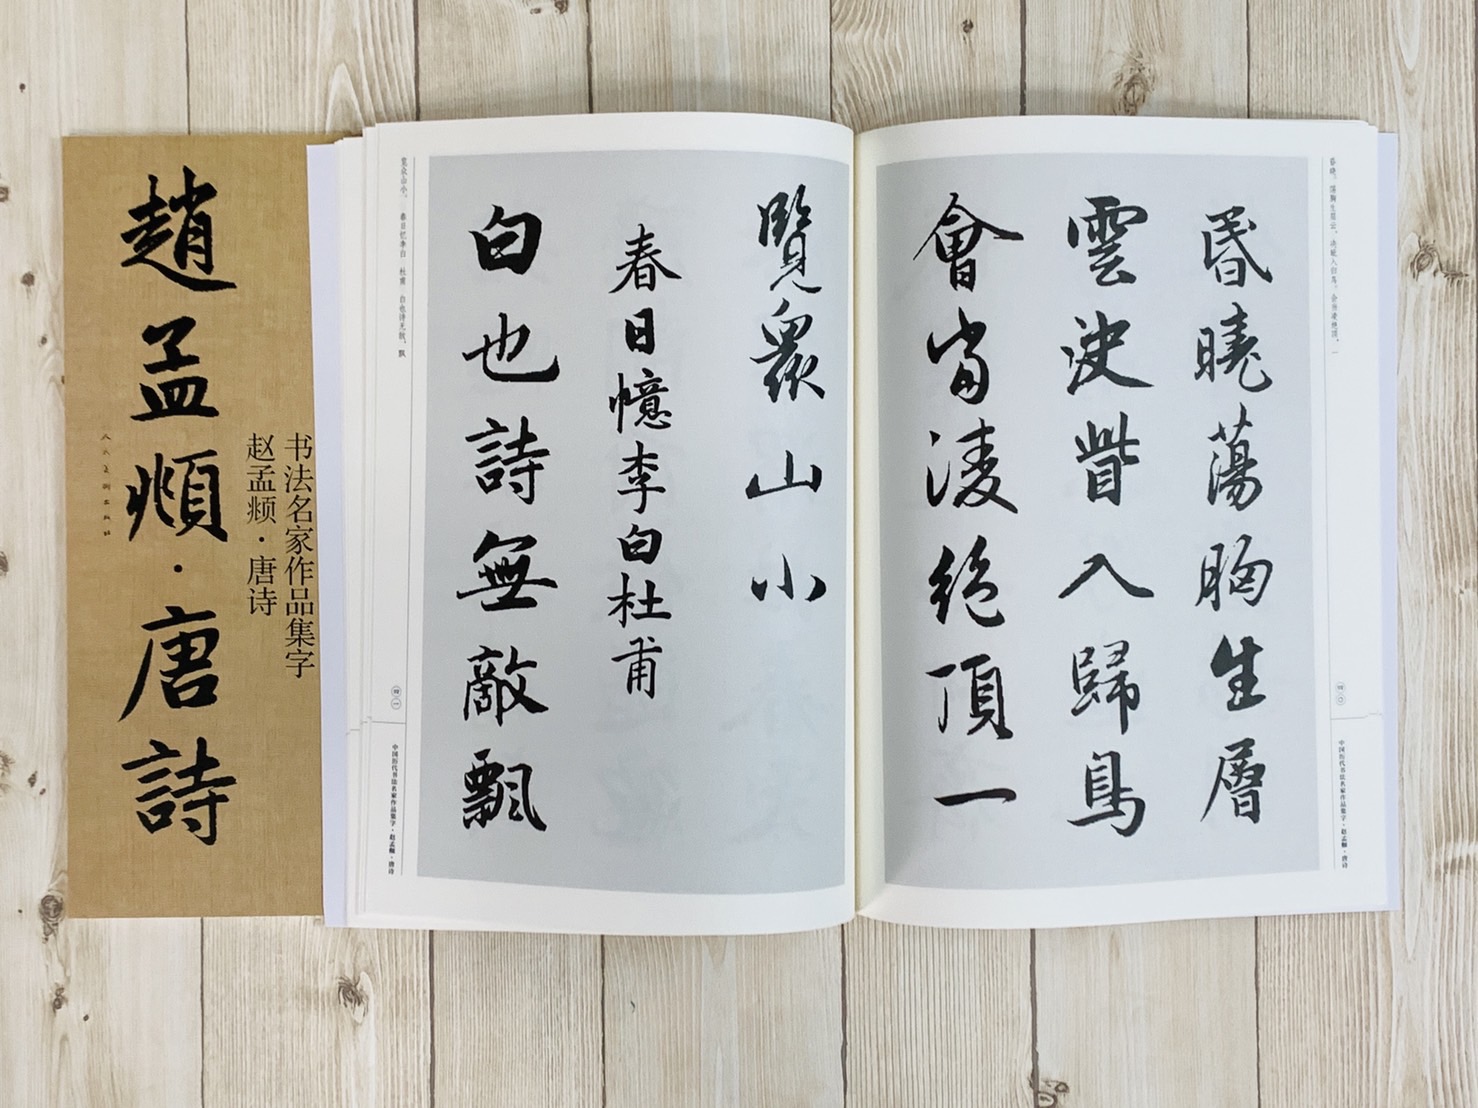 昏晓。荡胸生层云，决眦入归鸟。会当凌绝顶，一
四〇
中国历代书法名家作品集字·赵孟頫·唐诗
昏曉蕩胸生層
雲決眥入歸鳥
會當淩絕頂一
覽眾山小
春日憶李白杜甫
白也詩無敵飄
览众山小。 春日忆李白 杜甫 白也诗无敌，飘
四一
中国历代书法名家作品集字·赵孟頫·唐诗
书法名家作品集字
赵孟頫·唐诗
趙孟頫·唐詩
人民美術出版社